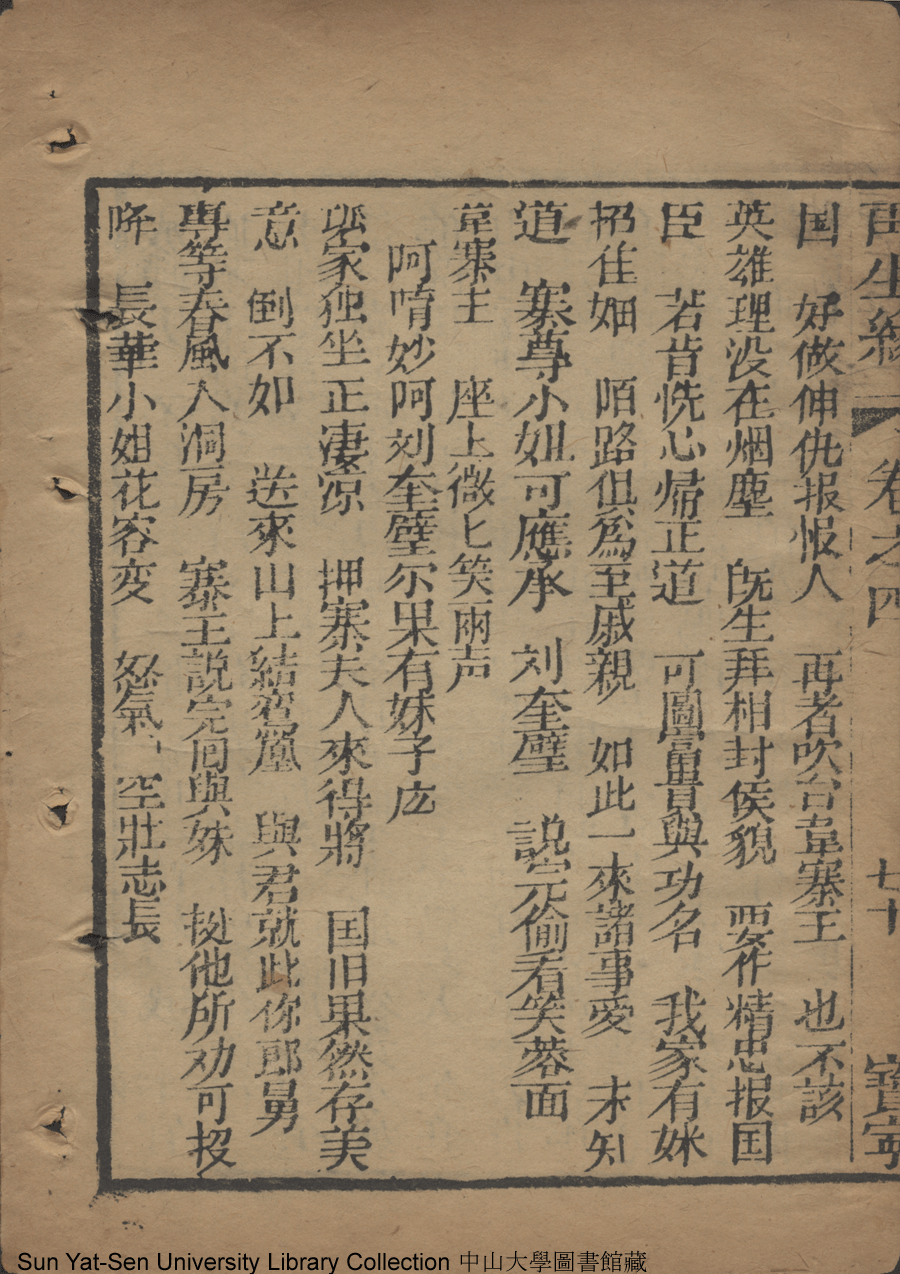 再生緣 卷之四 七十 寶寧
国 好做伸仇报恨人 再者吹台韋寨王 也不該
英雄理没在烟塵 既生拜相封侯貌 要作精忠报国
臣 若肯恍心帰正道 可圖畵與功名 我家有妹
招佳姻 陌路俱為至戚親 如此一來諸事愛 未知
道 寨尊小姐可應承 刘奎璧 説完偷看笑蓉面
韋寨主 座上微匕笑兩声
呵唷妙呵刘奎璧尔果有妹子庅
孤家独坐正凄凉 押寨夫人來得將 国旧果然存美
意 倒不如 送來山上結鸾凰 與君就此你郎舅
專等春風入洞房 寨王説完囘與妹 挝他所劝可投
降 長華小姐花容変 怒氣冲空壯志長
Sun Yat-Sen University Library Collection 中山大學圖書館藏